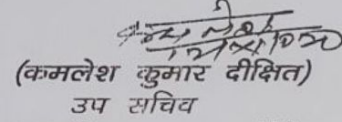 (कमलेश कुमार दीक्षित)
उप सचिव